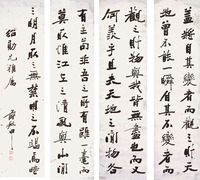 蓋將自其變者而觀之則天
地曾不能一瞬自其不變者而
觀之則物與我皆無盡也而又
何羨乎且夫天地之間物各
有主苟非吾之所有雖一毫而
莫取惟江上之清風與山間
之明月取之無禁用之不竭
兄雅屬